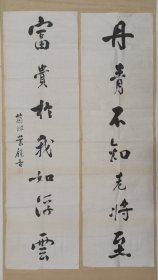 丹青不知老將至
富貴於我如浮雲